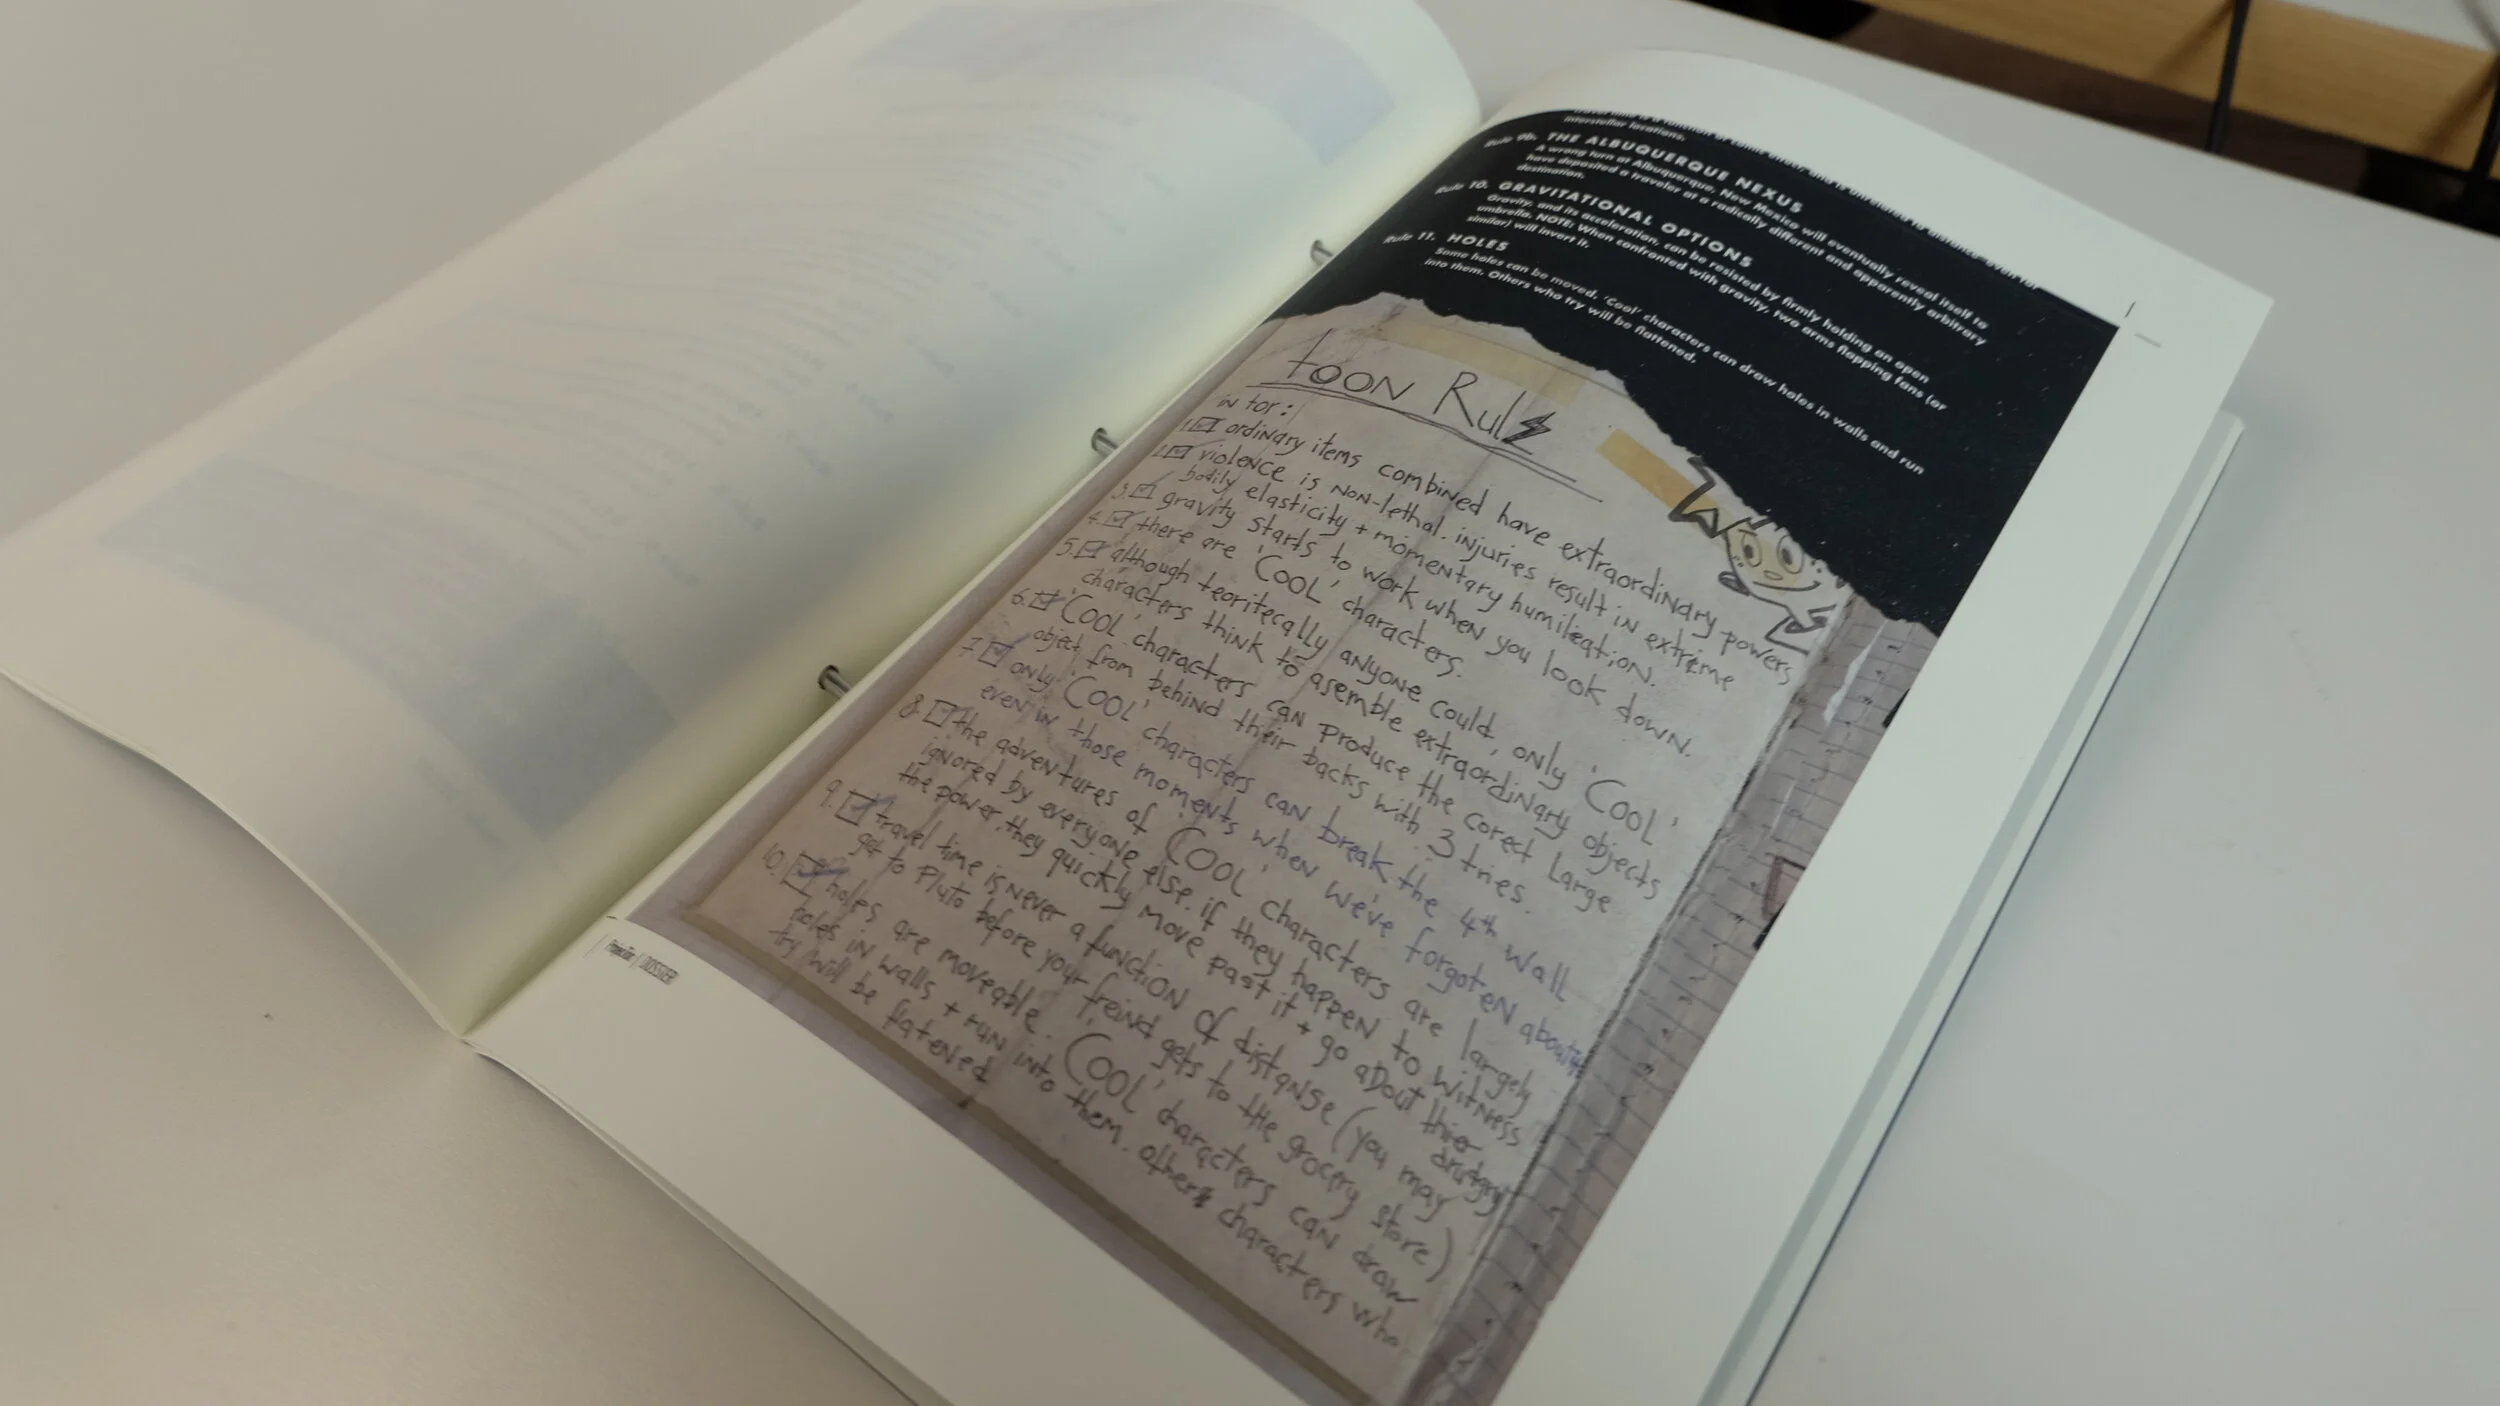 interstellar locations.
Rule 9b. THE ALBUQUERQUE NEXUS
A wrong turn at Albuquerque, New Mexico will eventually reveal itself to
have deposited a traveler at a radically different and apparently arbitrary
destination.
Rule 10. GRAVITATIONAL OPTIONS
Gravity, and its acceleration, can be resisted by firmly holding an open
umbrella. NOTE: When confronted with gravity, two arms flapping fans (or
similar) will invert it.
Rule 11. HOLES
Some holes can be moved. 'Cool' characters can draw holes in walls and run
into them. Others who try will be flattened.
tOON Rulz
in tor:
1. ordinary items combined have extraordinary powers
2. violence is NON-lethal. injuries result in extreme
bodily elasticity + momentary humileation.
3. gravity starts to work when you look down.
4. there are 'COOL' characters.
5. although teoritecally anyone could, only 'COOL'
characters think to asemble extraordinary objects
6. 'COOL' characters can produce the corect large
object from behind their backs with 3 tries.
7. only 'COOL' characters can break the 4th wall
even in those moments when we've forgoten about it
8. the adventures of 'COOL' characters are largely
ignored by everyone else. if they happen to witness
the power, they quickly move past it + go about thier drudgry
9. travel time is never a function of distanse (you may
get to Pluto before your freind gets to the grocery store)
10. holes are moveable. 'COOL' characters can draw
holes in walls + run into them. other characters who
try will be flatened
DOSSIER